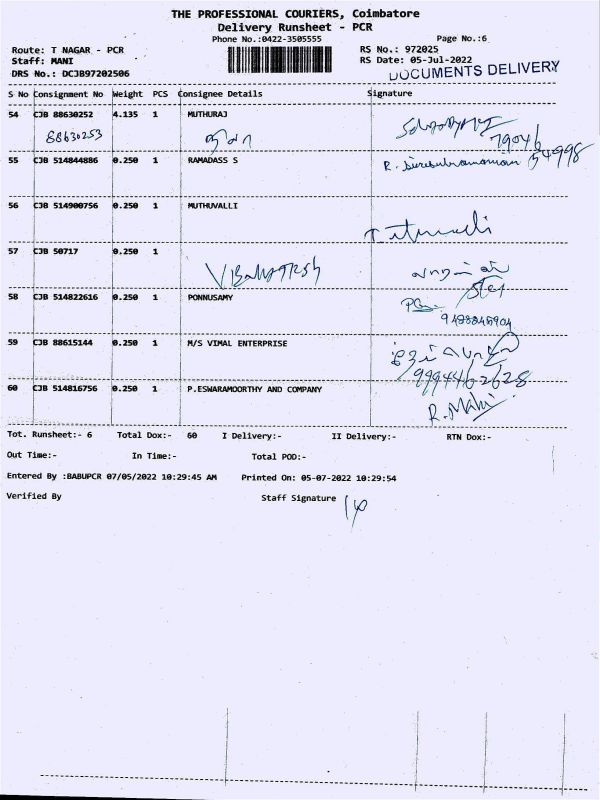 THE PROFESSIONAL COURIERS, Coimbatore
Delivery Runsheet - PCR
Phone No.:0422-3505555 Page No.:6
Route: T NAGAR - PCR RS No.: 972025
Staff: MANI RS Date: 05-Jul-2022
DRS No.: DCJB97202506 DOCUMENTS DELIVERY
S No Consignment No Weight PCS Consignee Details Signature
54 CJB 88630252 4.135 1 MUTHURAJ
88630253
55 CJB 514844886 0.250 1 RAMADASS S
56 CJB 514900756 0.250 1 MUTHUVALLI
57 CJB 50717 0.250 1
58 CJB 514822616 0.250 1 PONNUSAMY
59 CJB 88615144 0.250 1 M/S VIMAL ENTERPRISE
9994462628
60 CJB 514816756 0.250 1 P.ESWARAMOORTHY AND COMPANY
R.Mani
Tot. Runsheet:- 6 Total Dox:- 60 I Delivery:- II Delivery:- RTN Dox:-
Out Time:- In Time:- Total POD:-
Entered By :BABUPCR 07/05/2022 10:29:45 AM Printed On: 05-07-2022 10:29:54
Verified By Staff Signature